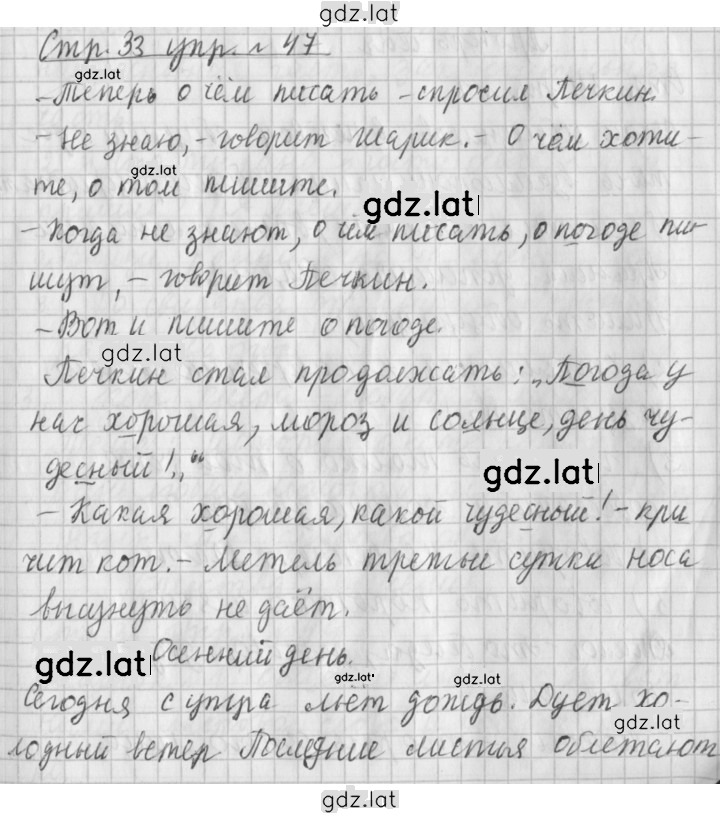 gdz.lat
Стр. 33 упр. № 47
gdz.lat
- Теперь о чём писать - спросил Печкин.
- Не знаю, - говорит Шарик. - О чём хоти-
gdz.lat
те, о том пишите.
gdz.lat
- Когда не знают, о чём писать, о погоде пи-
шут, - говорит Печкин.
- Вот и пишите о погоде.
gdz.lat
Печкин стал продолжать: „Погода у
нас хорошая, мороз и солнце, день чу-
десный!„“
gdz.lat
- Какая хорошая, какой чудесный! - кри
чит кот. - Метель третьи сутки носа
высунуть не даёт.
gdz.lat Осенний день.
gdz.lat gdz.lat
Сегодня с утра льёт дождь. Дует хо-
gdz.lat
лодный ветер Последние листья облетают
gdz.lat